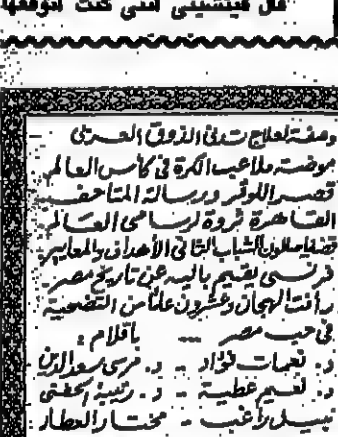 قال فيتشيني انني كنت اتوقعها
وصفة لعلاج تدنى الذوق العربى
موضة ملاعب الكرة فى كأس العالم
قصر اللوفر ورسالة المتاحف
القاهرة ثروة لرسامى العالم
الشباب الثانى الأهداف والمعايير
فرنسى يقيم باليه عن تاريخ مصر
رأفت الهجان وعشرون عامًا من التضحية
فى حب مصر ... بأقلام :
د. نعمات فؤاد - د. مرسى سعد الدين
د. نعيم عطية - د. زينب
نبيل راغب - مختار العطار